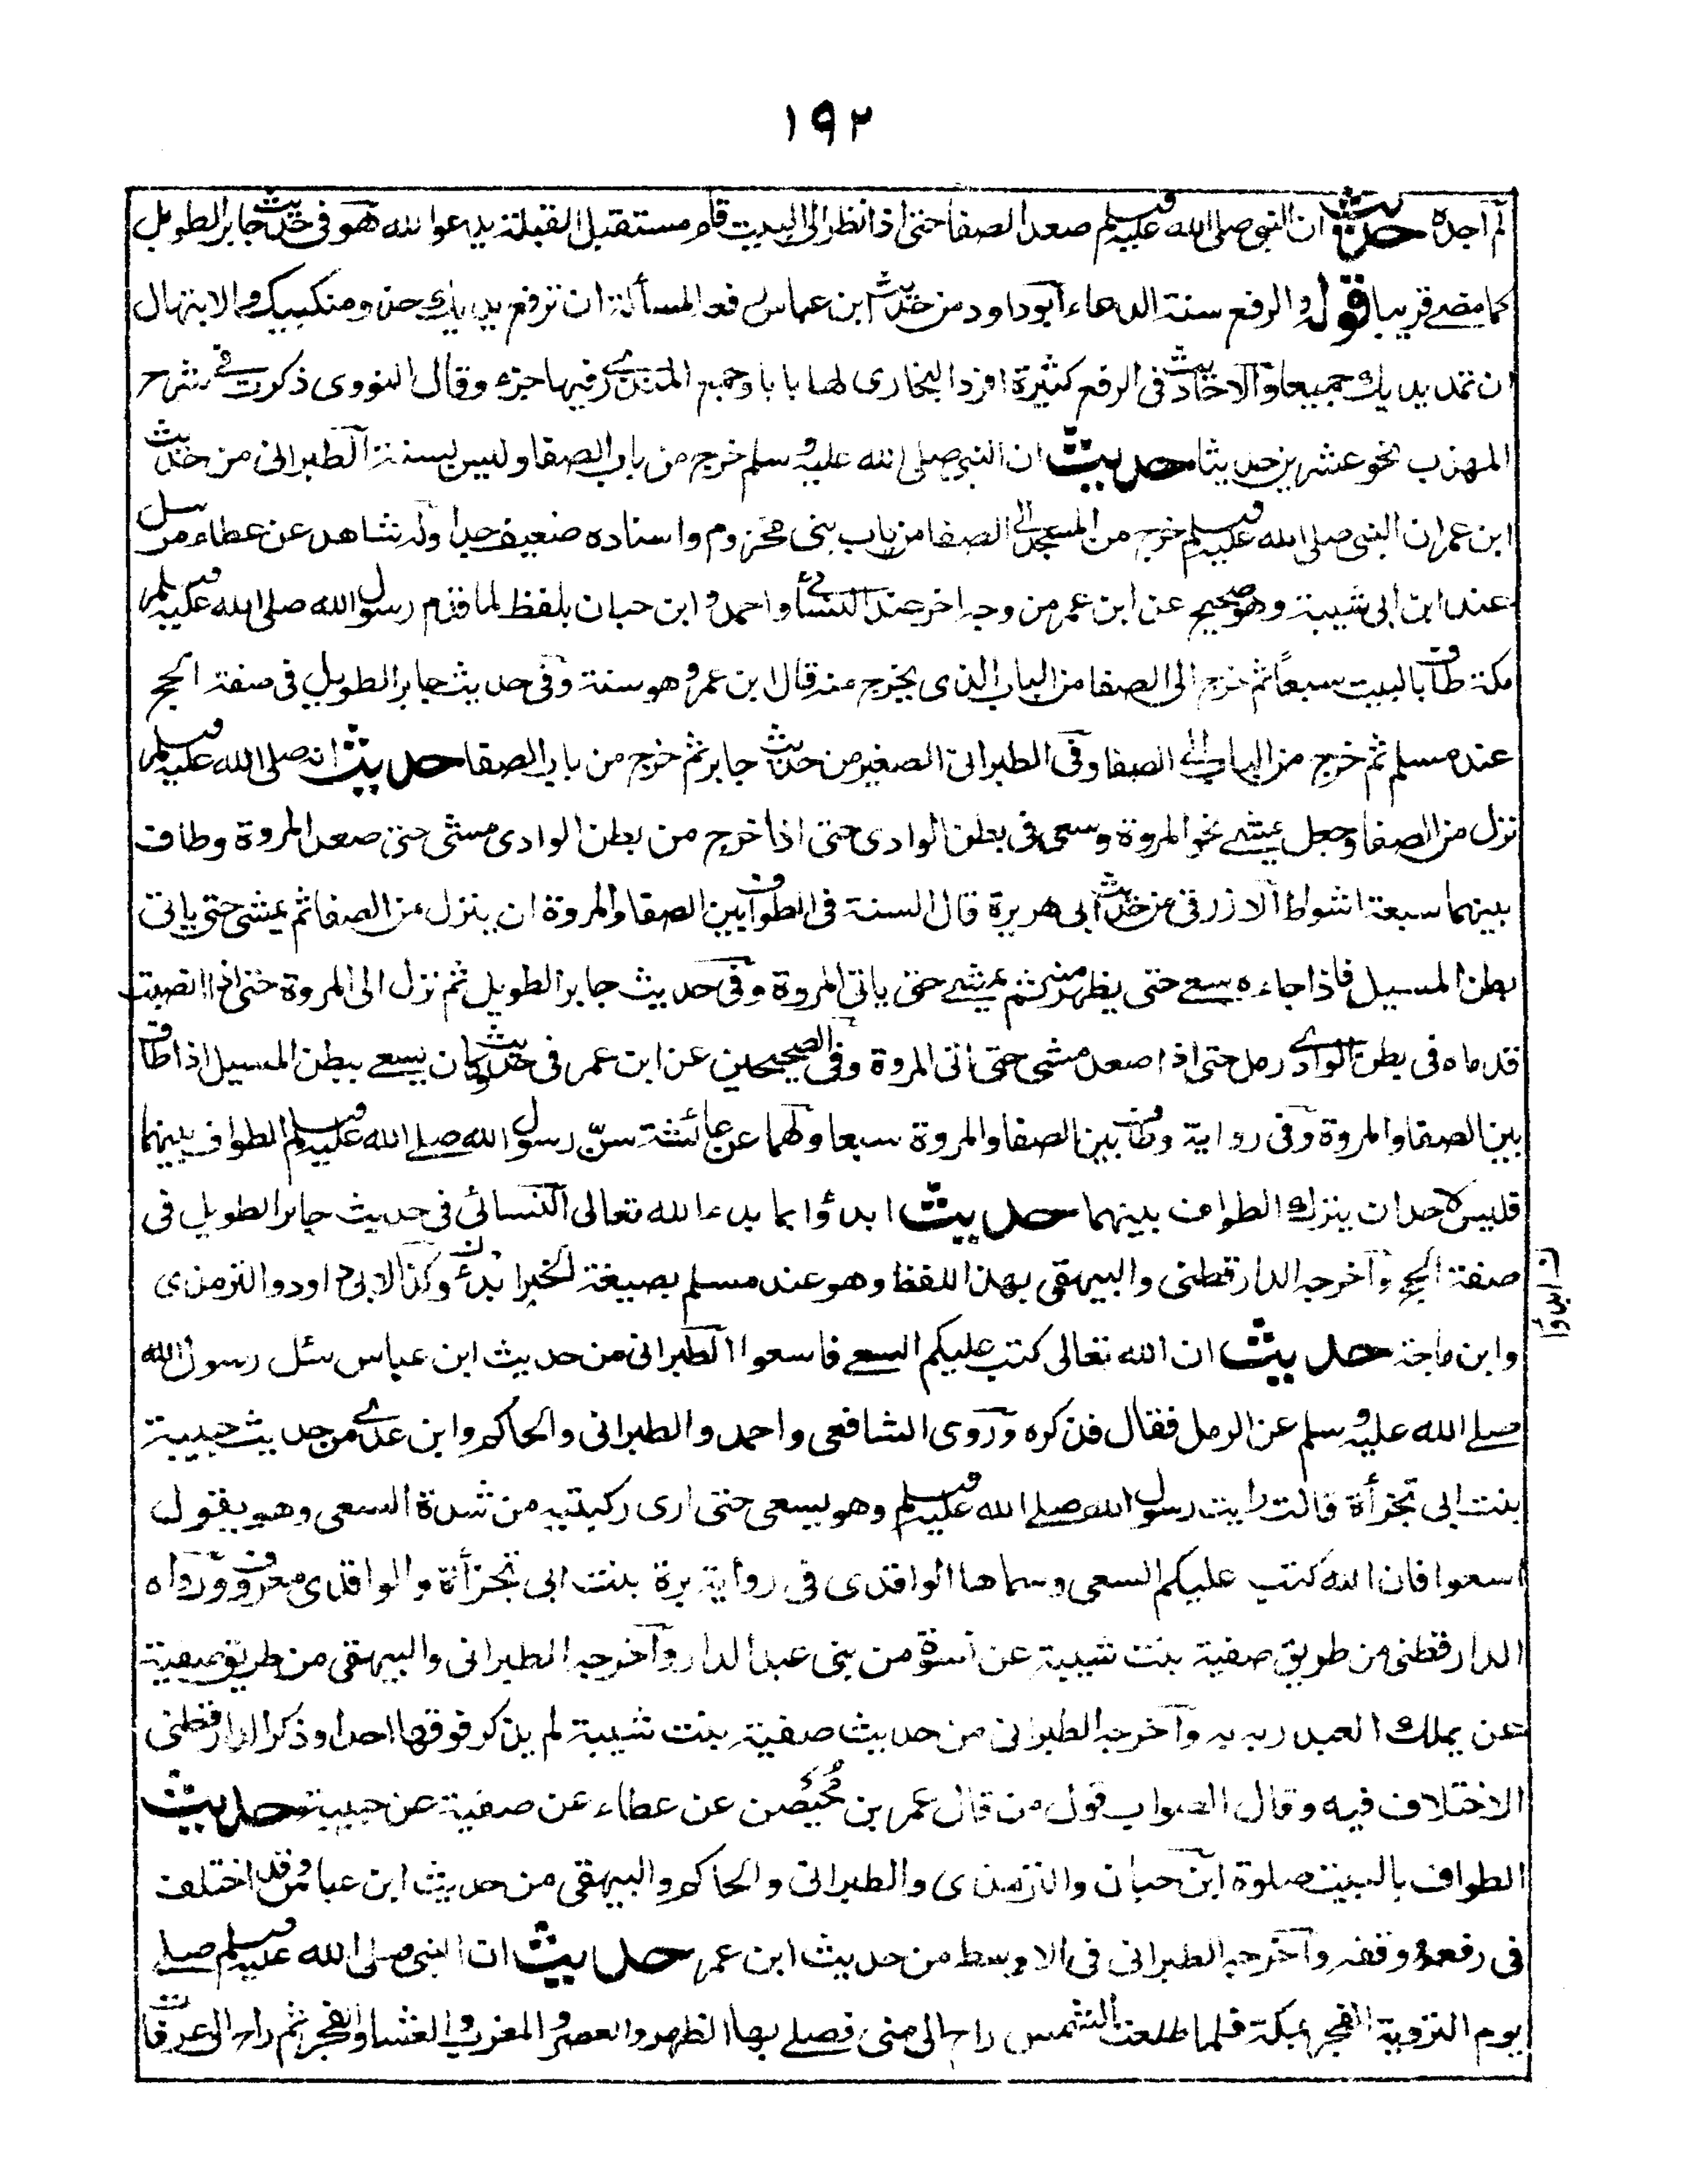 ١٩٢
لم اجده حديث ان النبي صلى الله عليه وسلم صعد الصفا حتى اذا نظر الى البيت قام مستقبل القبلة يدعوا لله هو فى حديث جابر الطويل
كما مضى قريبا قوله والرفع سنة الدعاء ابو داود من حديث ابن عباس رفعه المسألة ان ترفع يديك حذو منكبيك والابتهال
ان تمد يديك جميعا والاحاديث فى الرفع كثيرة افرد البخارى لها بابا وجمع المنذرى فيها جزء وقال النووى ذكرت فى شرح
المهذب نحو عشرين حديثا حديث ان النبي صلى الله عليه وسلم خرج من باب الصفا وليس بسنة الطبرانى من حديث
ابن عمر ان النبي صلى الله عليه وسلم خرج من المسجد الى الصفا من باب بنى مخزوم واسناده ضعيف جدا وله شاهد عن عطاء مرسل
عند ابن ابى شيبة وهو صحيح عن ابن عمر من وجه اخر عند النسائى واحمد وابن حبان بلفظ لما قدم رسول الله صلى الله عليه وسلم
مكة طاف بالبيت سبعاً ثم خرج الى الصفا من الباب الذى يخرج منه قال ابن عمر وهو سنة وفى حديث جابر الطويل فى صفة الحج
عند مسلم ثم خرج من الباب الى الصفا وفى الطبرانى الصغير من حديث جابر ثم خرج من باب الصفا حديث انه صلى الله عليه وسلم
نزل من الصفا وجعل يمشى نحو المروة وسعى فى بطن الوادى حتى اذا خرج من بطن الوادى مشى حتى صعد المروة وطاف
بينهما سبعة اشواط الازرقى عن حديث ابى هريرة قال السنة فى الطواف بين الصفا والمروة ان ينزل من الصفا ثم يمشى حتى ياتى
بطن المسيل فاذا جاءه سعى حتى يظهر منه ثم يمشى حتى ياتى المروة وفى حديث جابر الطويل ثم نزل الى المروة حتى اذا انصبت
قدماه فى بطن الوادى رمل حتى اذا صعد مشى حتى اتى المروة وفى الصحيحين عن ابن عمر فى حديث وكان يسعى ببطن المسيل اذا طاف
بين الصفا والمروة وفى رواية وطاف بين الصفا والمروة سبعا ولهما عن عائشة سنّ رسول الله صلى الله عليه وسلم الطواف بينهما
فليس لاحد ان يترك الطواف بينهما حديث ابدؤا بما بدء الله تعالى النسائى فى حديث جابر الطويل فى
صفة الحج واخرجه الدارقطنى والبيهقى بهذا اللفظ وهو عند مسلم بصيغة الخبر ابدء وكذا لابى داود والترمذى
وابن ماجة حديث ان الله تعالى كتب عليكم السعى فاسعوا الطبرانى من حديث ابن عباس سئل رسول الله
صلى الله عليه وسلم عن الرمل فقال فذكره وروى الشافعى واحمد والطبرانى والحاكم وابن عدى من حديث حبيبة
بنت ابى تجزأة قالت رايت رسول الله صلى الله عليه وسلم وهو يسعى حتى ارى ركبتيه من شدة السعى وهو يقول
اسعوا فان الله كتب عليكم السعى وسماها الواقدى فى رواية برة بنت ابى تجزأة والواقدى معروف ورواه
الدارقطنى من طريق صفية بنت شيبة عن نسوة من بنى عبد الدار واخرجه الطبرانى والبيهقى من طريق صفية
عن يملك العبدريه واخرجه الطبرانى من حديث صفية بنت شيبة لم يذكر فوقها احدا وذكر الدارقطنى
الاختلاف فيه وقال الصواب قول من قال عمر بن محيصن عن عطاء عن صفية عن حبيبة حديث
الطواف بالبيت صلوة ابن حبان والترمذى والطبرانى والحاكم والبيهقى من حديث ابن عباس وقد اختلف
فى رفعه ووقفه واخرجه الطبرانى فى الاوسط من حديث ابن عمر حديث ان النبي صلى الله عليه وسلم صلى
يوم التروية الفجر بمكة فلما طلعت الشمس راح الى منى فصلى بها الظهر والعصر والمغرب والعشاء والفجر ثم راح الى عرفات